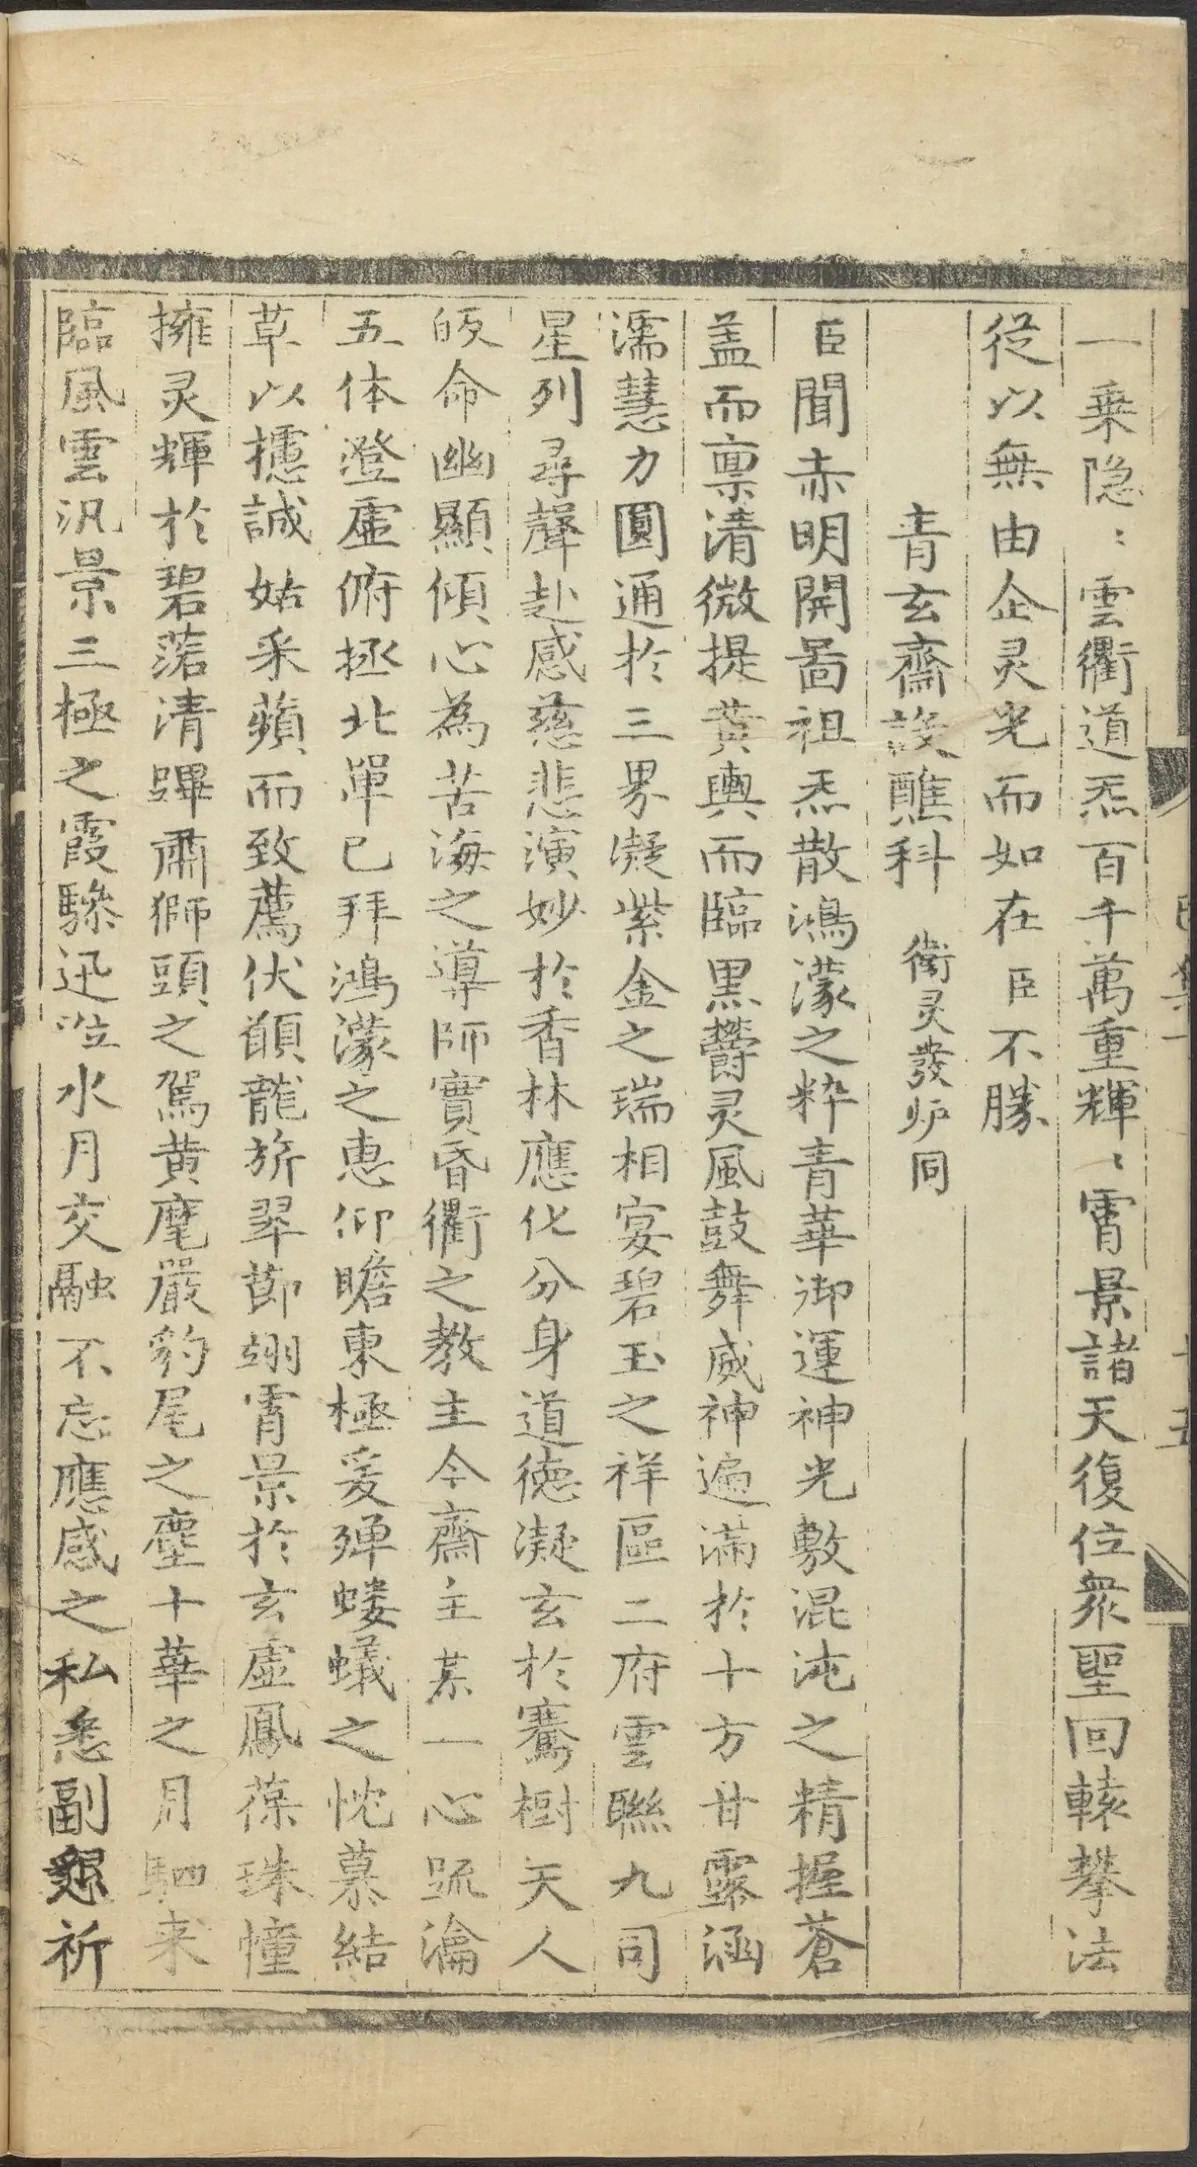 一乗隐〻雲衢道炁百千萬重輝〻霄景諸天復位衆聖回轅攀法
從以無由企灵光而如在臣不勝
青玄齋設醮科 衛灵發炉同
臣聞赤明開啚祖炁散鴻濛之粋青華御運神光敷混沌之精握蒼
盖而禀清微提黄輿而臨黒欝灵風鼓舞威神遍滿於十方甘露涵
濡慧力圓通於三界凝紫金之瑞相宴碧玉之祥區二府雲聮九司
星列尋聲赴感慈悲演妙於香林應化分身道徳凝玄於騫樹天人
皈命幽顯傾心為苦海之導師實昏衢之教主今齋主某一心䟽瀹
五体澄虚俯拯北單已拜鴻濛之恵仰瞻東極爰殫蝼蟻之忱慕結
草以攄誠姑采蘋而致薦伏願龍旂翠莭翊霄景於玄虚鳳葆珠幢
擁灵輝於碧落清蹕肅獅頭之駕黄麾嚴豹尾之塵十華之月駟来
臨風雲汎景三極之霞驂迅泣水月交融不忘應感之私悉副懇祈